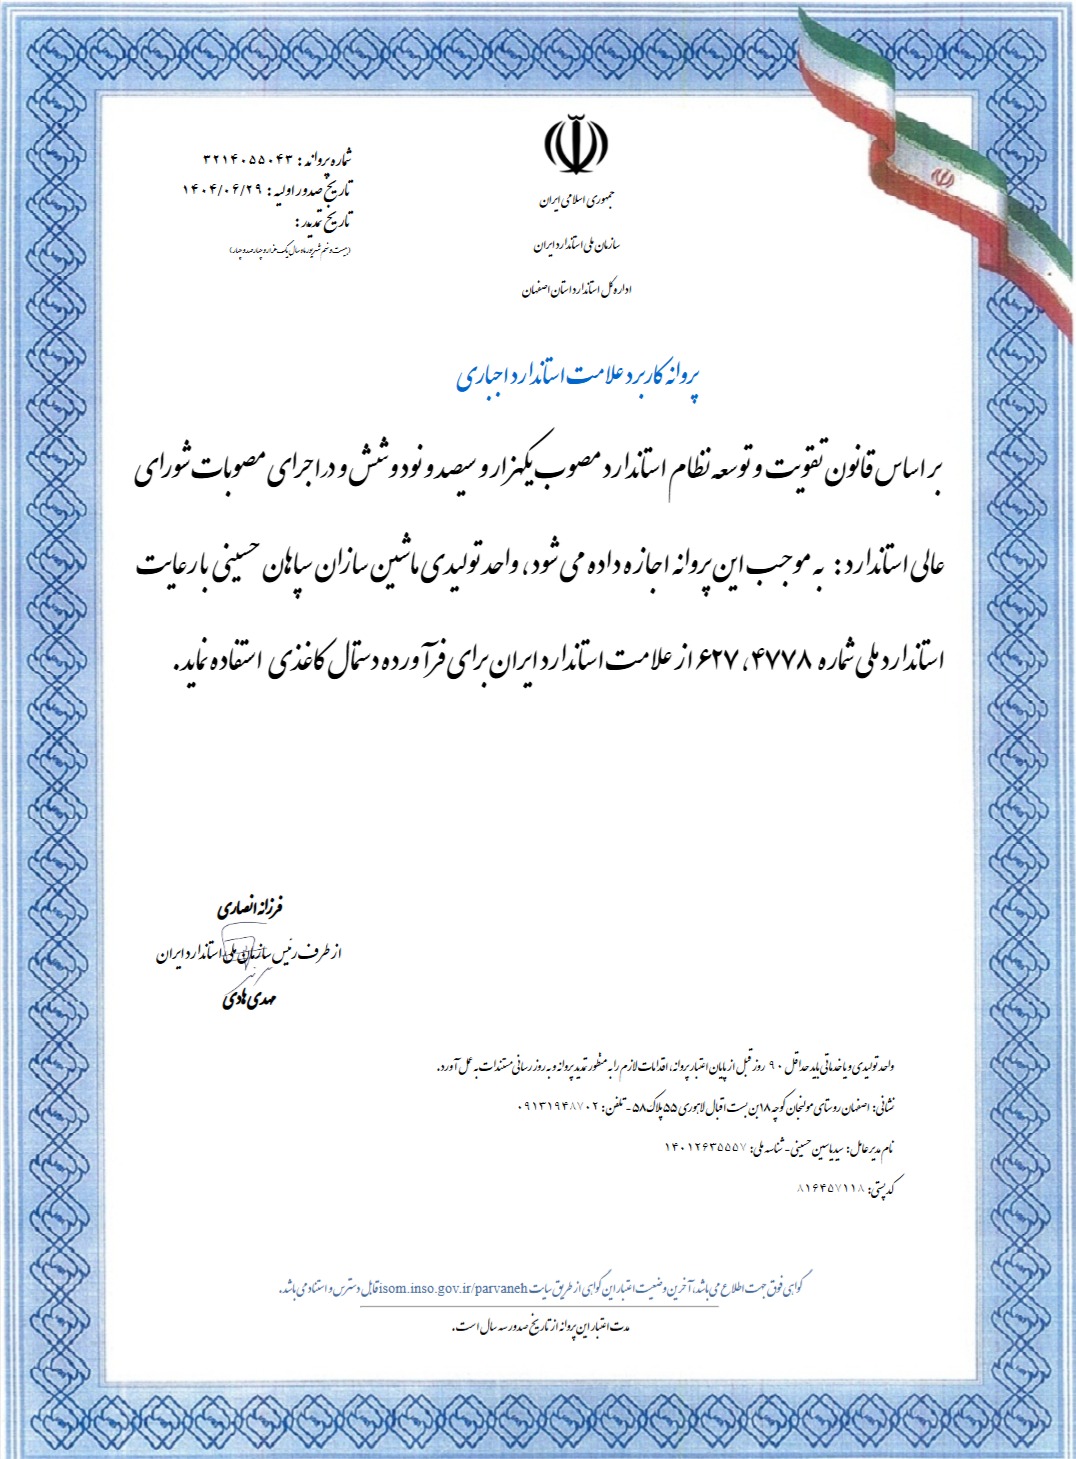 جمهوری اسلامی ایران
سازمان ملی استاندارد ایران
اداره کل استاندارد استان اصفهان
شماره پروانه : ۳۲۱۴۰۵۵۰۴۳
تاریخ صدور اولیه : ۱۴۰۴/۰۶/۲۹
تاریخ تمدید :
(بیست و نهم شهریور ماه سال یک هزار و چهارصد و چهار)
پروانه کاربرد علامت استاندارد اجباری
بر اساس قانون تقویت و توسعه نظام استاندارد مصوب یکهزار و سیصد و نود و شش و در اجرای مصوبات شورای
عالی استاندارد : به موجب این پروانه اجازه داده می شود، واحد تولیدی ماشین سازان سپاهان حسینی با رعایت
استاندارد ملی شماره ۴۷۷۸، ۶۲۷ از علامت استاندارد ایران برای فرآورده دستمال کاغذی استفاده نماید.
فرزانه انصاری
از طرف رئیس سازمان ملی استاندارد ایران
مهدی هادی
واحد تولیدی و یا خدماتی باید حداقل ۹۰ روز قبل از پایان اعتبار پروانه، اقدامات لازم را به منظور تمدید پروانه و به روز رسانی مستندات به عمل آورد.
نشانی: اصفهان روستای مولنجان کوچه ۱۸ بن بست اقبال لاهوری ۵۵ پلاک ۵۸ - تلفن: ۰۹۱۳۱۹۴۸۷۰۲
نام مدیر عامل: سیدیاسین حسینی - شناسه ملی: ۱۴۰۱۲۶۳۵۵۵۷
کد پستی: ۸۱۶۴۵۷۱۱۸
گواهی فوق جهت اطلاع می باشد، آخرین وضعیت اعتبار این گواهی از طریق سایت isom.inso.gov.ir/parvaneh قابل دسترس و استناد می باشد.
مدت اعتبار این پروانه از تاریخ صدور سه سال است.